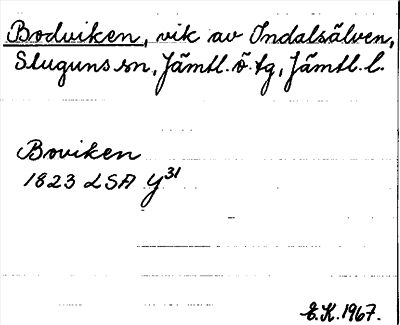 Bodviken, vik av Indalsälven,
Stuguns sn, Jämtl. ö. tg, Jämtl. l.
Boviken
1823 LSA Y31
E.K. 1967.